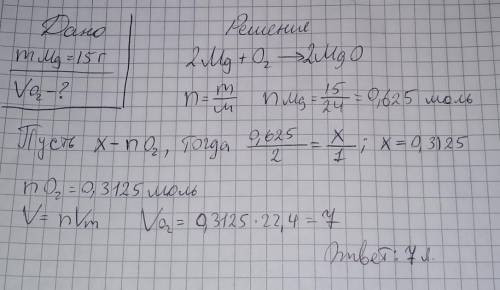 Дано
m Mg = 15 г
V O₂ - ?
Решение
2Mg + O₂ → 2MgO
n = m/M   n Mg = 15/24 = 0,625 моль
Пусть x - n O₂, тогда 0,625/2 = x/1 ; x = 0,3125
n O₂ = 0,3125 моль
V = nVm   V O₂ = 0,3125 · 22,4 = 7
Ответ: 7 л.